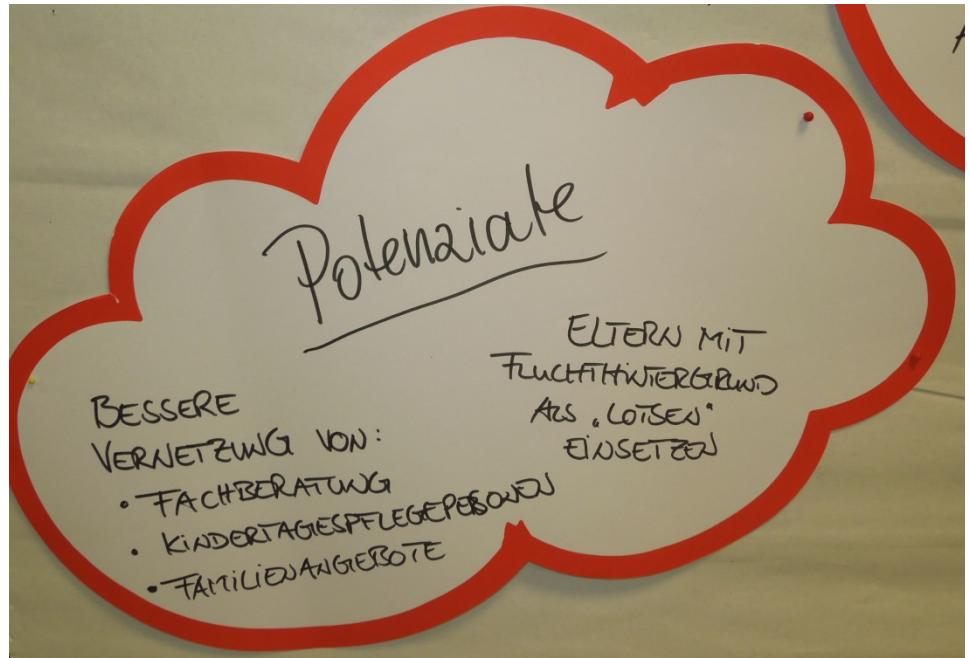 Potenziale
BESSERE
VERNETZUNG VON:
• FACHBERATUNG
• KINDERTAGESPFLEGEPERSONEN
• FAMILIENANGEBOTE
ELTERN MIT
FLUCHTHINTERGRUND
ALS „LOTSEN"
EINSETZEN